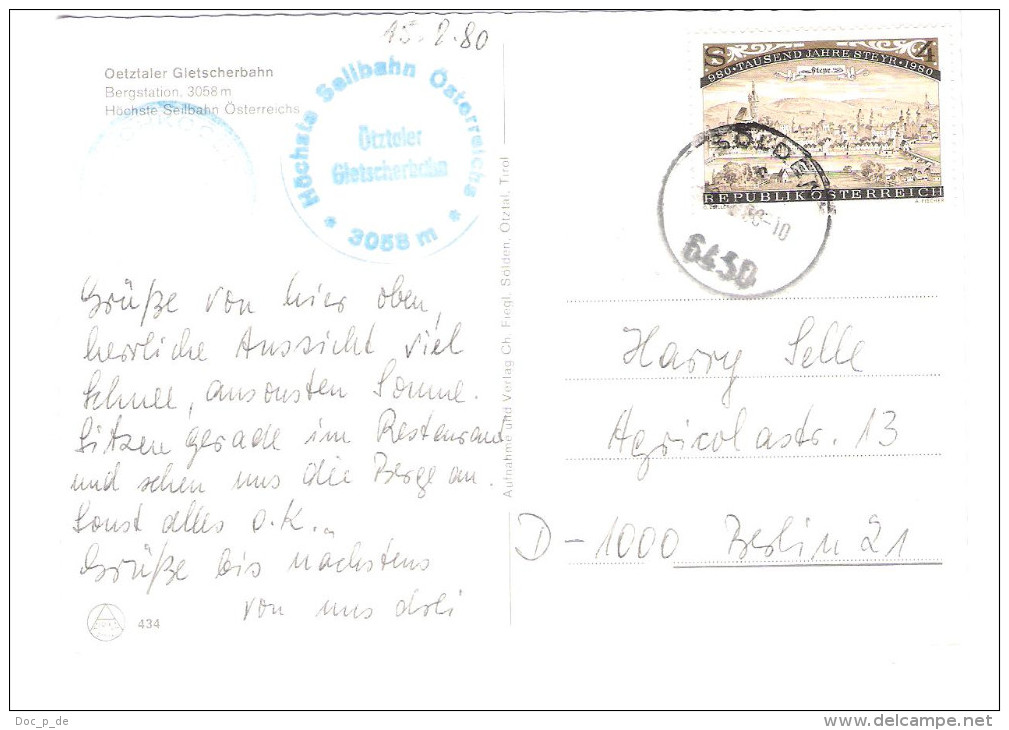 15.2.80
Oetztaler Gletscherbahn
Bergstation, 3058 m
Höchste Seilbahn Österreichs
Höchste Seilbahn Österreichs
Ötztaler
Gletscherbahn
* 3058 m *
Grüße von hier oben,
herrliche Aussicht viel
Schnee, ansonsten Sonne.
Sitzen gerade im Restaurant
und sehen uns die Berge an.
Sonst alles o.K.
Grüße bis nächstens
von uns drei
434
Aufnahme und Verlag Ch. Fiegl, Sölden, Ötztal, Tirol
S 4
980 · TAUSEND JAHRE STEYR · 1980
Steyr
REPUBLIK ÖSTERREICH
A. FISCHER
SOELDEN
80-10
6450
Harry Selle
Agricolastr. 13
D-1000 Berlin 21
Doc_p_de
www.delcampe.net